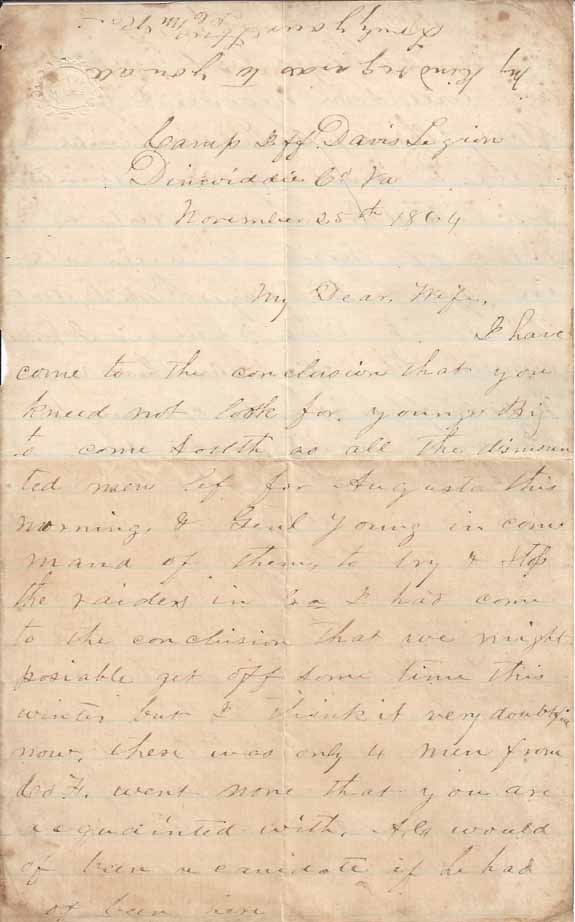 my kind regards to you all
Truly yours
Camp Jeff Davis Legion
Dinwiddie Co Va
November 25th 1864
My Dear Wife,
I have
come to the conclusion that you
kneed not look for youngs Brig
to come South as all the dismoun
ted men lef for Augusta this
morning & Genl Young in com
mand of them, to try & stop
the raiders in Ga I had come
to the conclision that we might
posiable get off some time this
winter but I think it very doubtful
now, there was only 4 men from
Co F. went none that you are
acquainted with, would
of been a canidate if he had
of been here